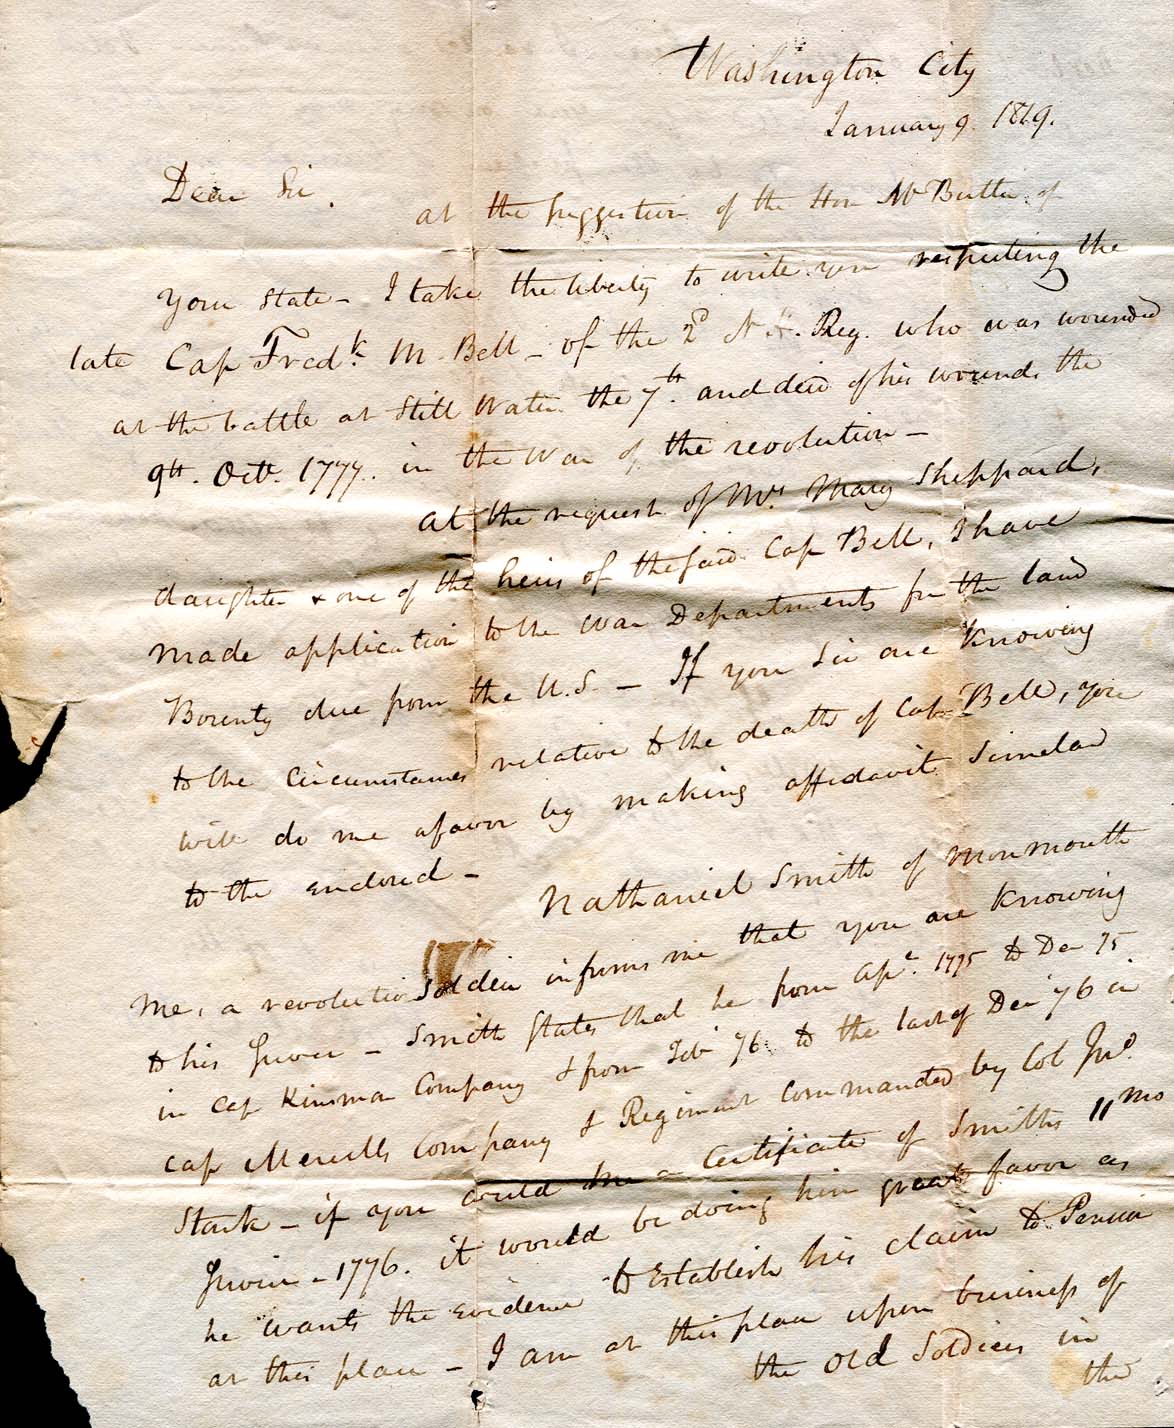 Washington City
January 9. 1819.
Dear Sir.
at the suggestion of the Hon Mr Butler of
your state - I take the liberty to write you respecting the
late Cap Fredk. M. Bell - of the 2d N H. Reg. who was wounded
at the battle at Still Water the 7th. and died of his wounds the
9th. Octr. 1777. in the War of the revolution -
at the request of Mrs Mary Sheppard,
daughter & one of the heirs of the said Cap Bell, I have
made application to the War Departments for the land
Bounty due from the U.S. - If you Sir are knowing
to the Circumstances relative to the death of Cap Bell, you
will do me a favor by making affidavit Similar
to the enclosed -
Nathaniel Smith of Monmouth
Me, a revolutio Soldier informs me that you are knowing
to his Service - Smith States that he from Apl. 1775 to Dec 75
in Cap Kinsman Company & from Feb 76 to the last of Dec 76 in
Cap Merills Company & Regiment Commanded by Col Jno.
Stark - if you could a Certificate of Smiths 11 mo
Service - 1776. it would be doing him great favor as
he wants the evidence to Establish his claim to Pension
at this place - I am at this place upon business of
the old Soldiers in
the